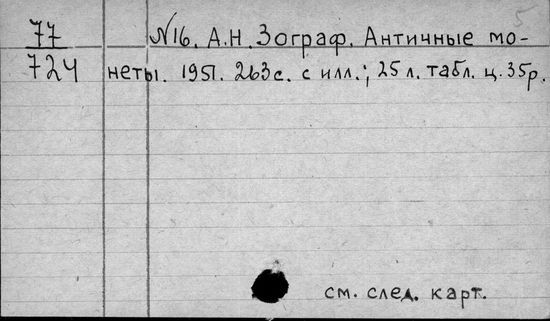 5
77 №16. А.Н. Зограф. Античные мо-
724 неты. 1951. 263с. с илл.; 25 л. табл. ц. 35р.
см. след. карт.